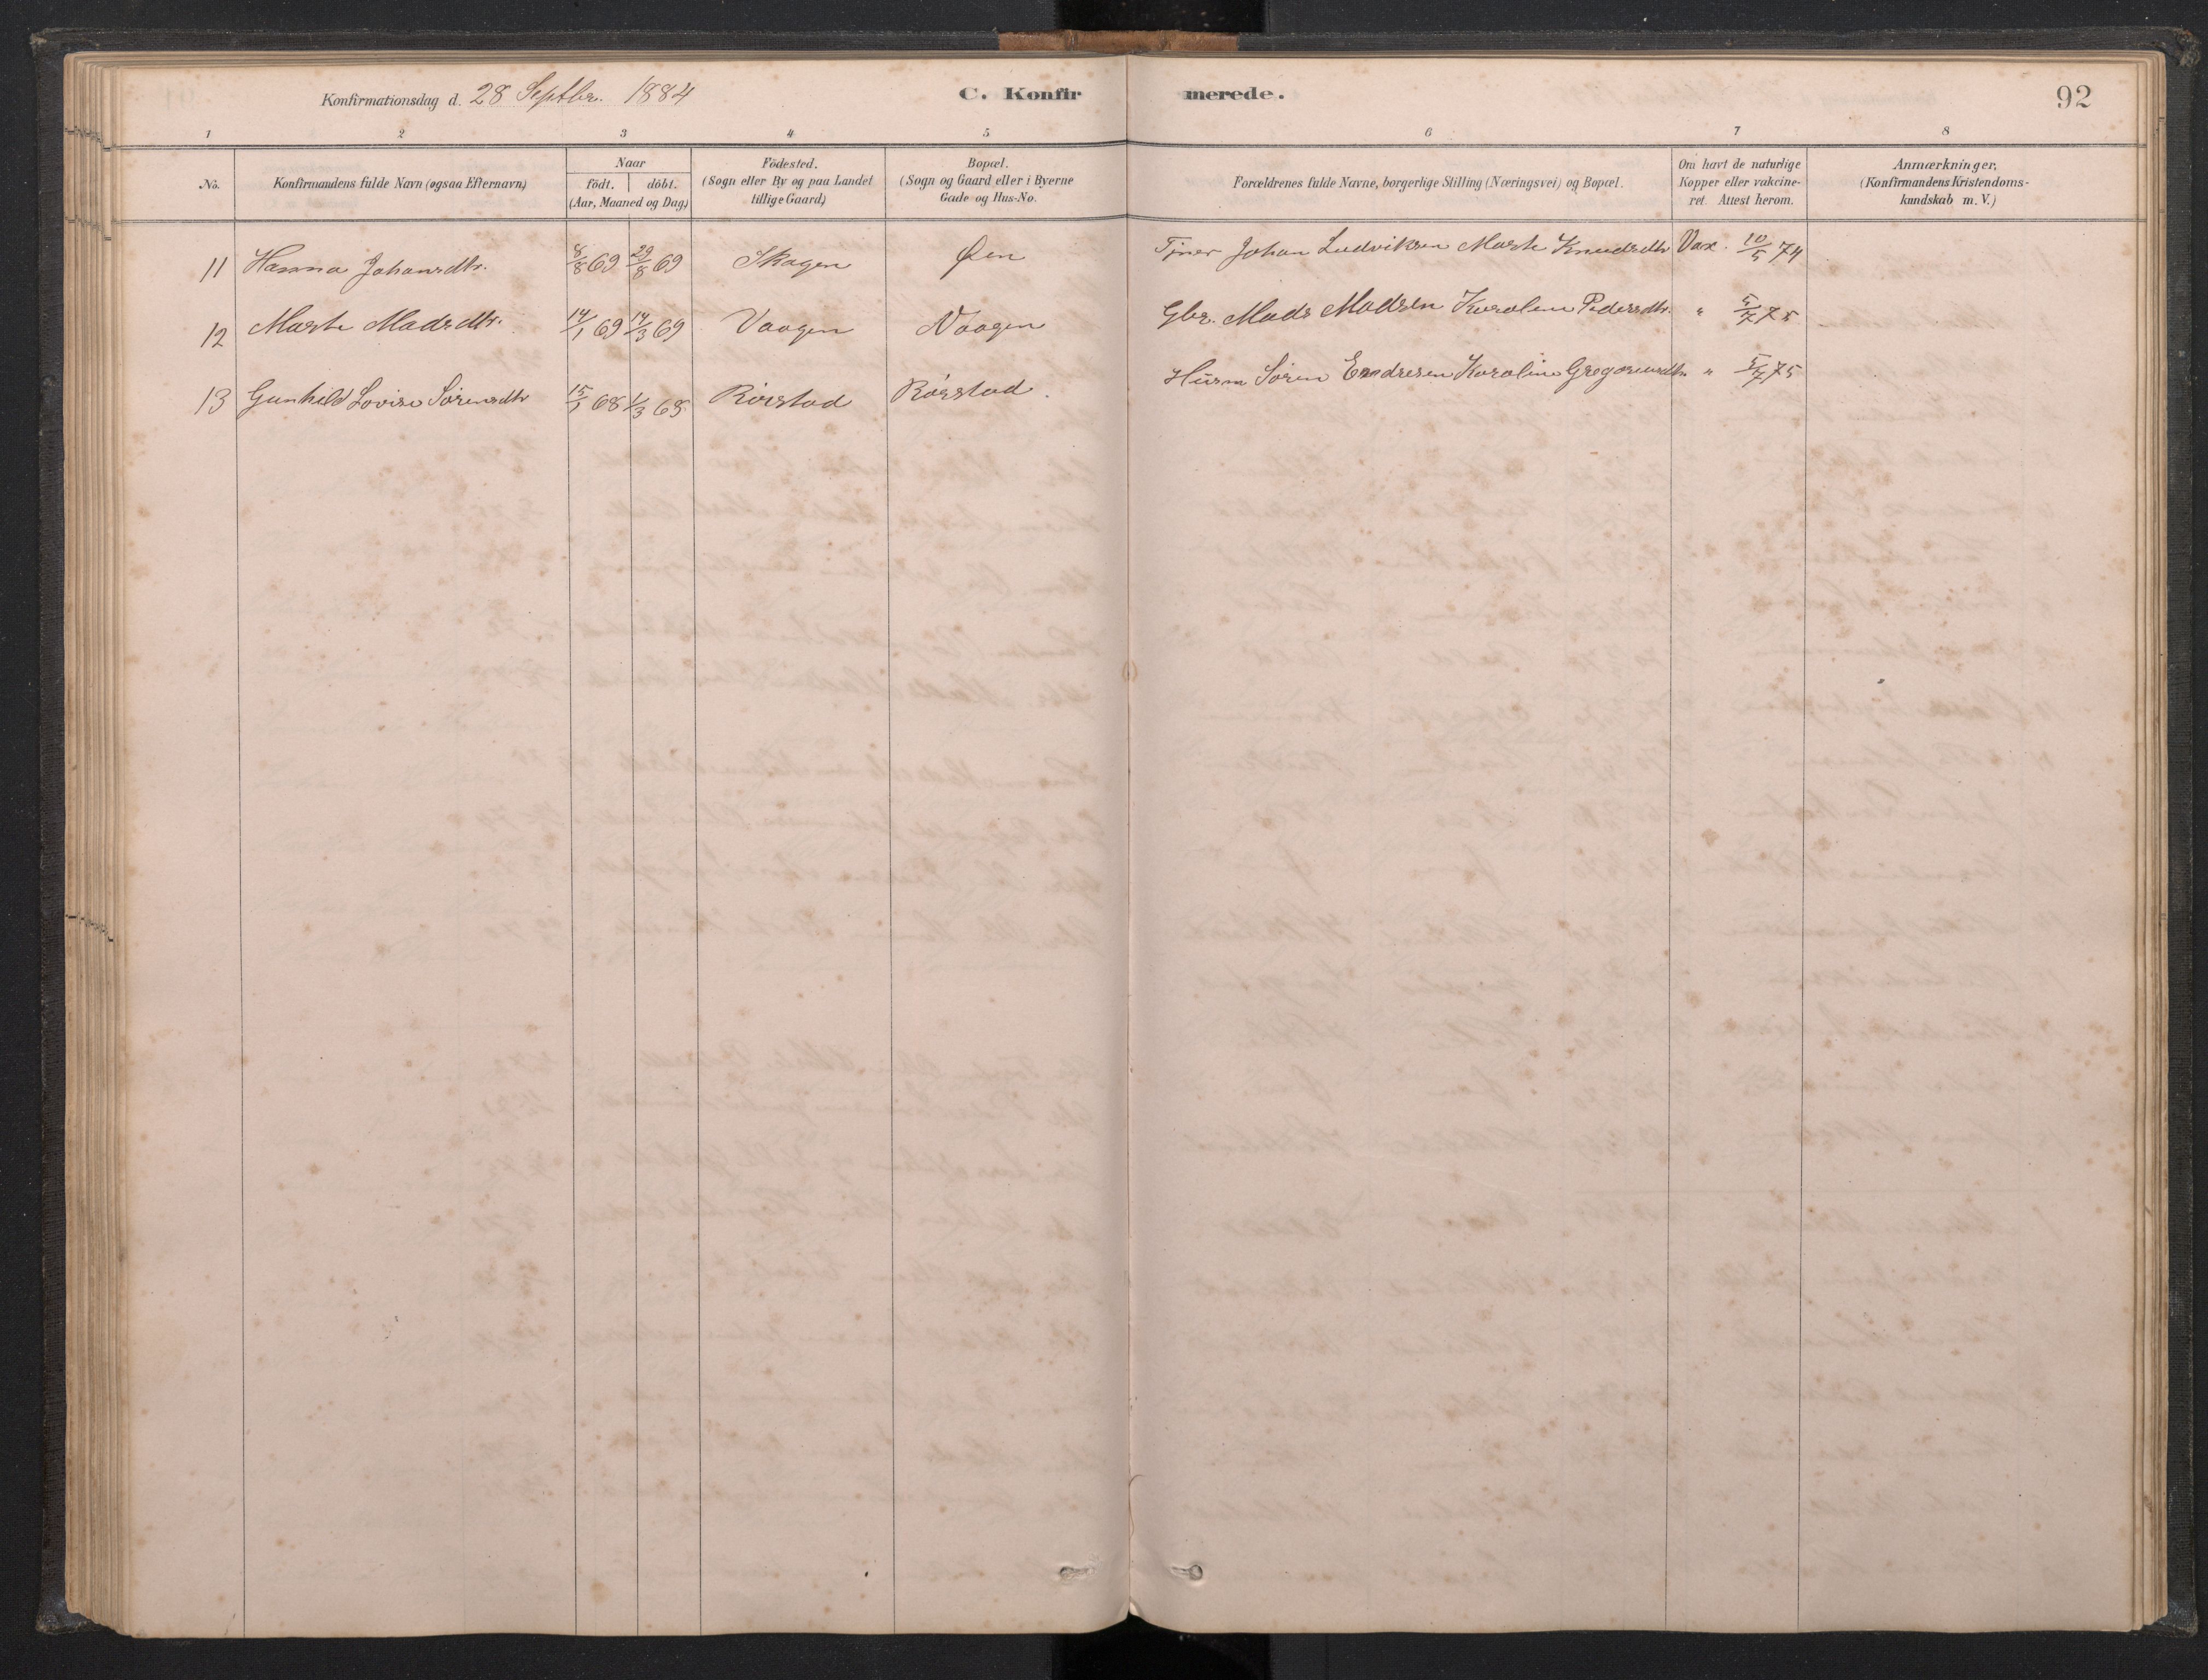 Konfirmationsdag d. 28 Septbr. 1884 C. Konfirmerede. 92
1 2 3 4 5 6 7 8
No. Konfirmandens fulde Navn (ogsaa Efternavn) Naar födt. döbt. (Aar, Maaned og Dag) Födested. (Sogn eller By og paa Landet tillige Gaard) Bopæl. (Sogn og Gaard eller i Byerne Gade og Hus-No. Forældrenes fulde Navne, borgerlige Stilling (Næringsvei) og Bopæl. Om havt de naturlige Kopper eller vakcineret. Attest herom. Anmærkninger, (Konfirmandens Kristendomskundskab m. V.)
11 Hanna Johansdtr. 8/8 69 29/8 69 Skagen Øen Tjner Johan Ludviksen Marte Knudsdtr Vax. 10/5 74
12 Marte Madsdtr. 14/1 69 14/3 69 Vaagen Vaagen Gbr. Mads Madsen Karolene Pedersdtr. " 5/7 75
13 Gunhild Lovise Sörensdtr 15/1 68 1/3 68 Rörstad Rörstad. Husm Sören Endresen Karoline Gregoriusdtr " 5/7 75